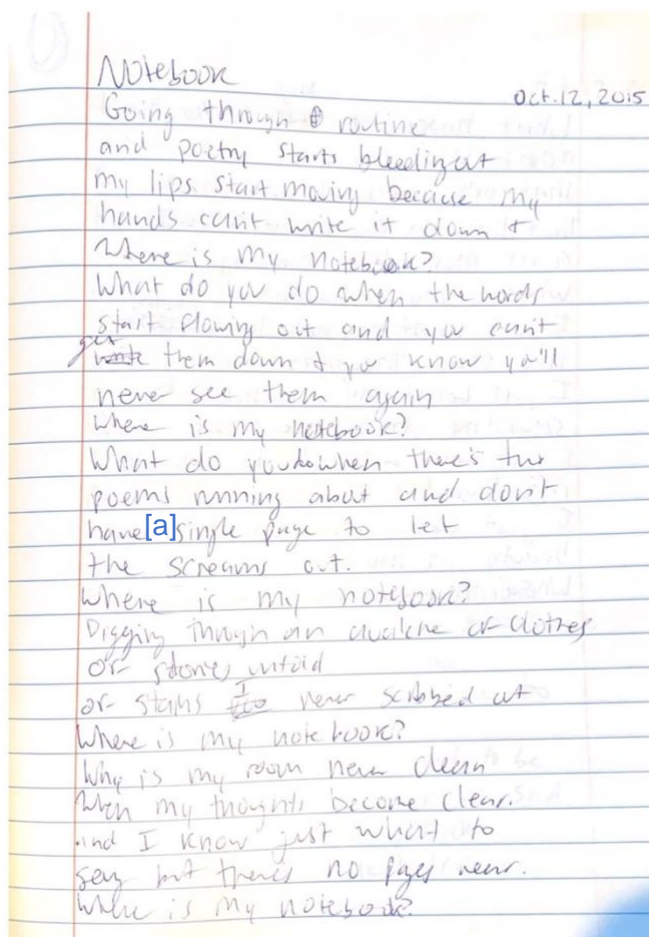 Notebook
Oct. 12, 2015
Going through routine
and poetry starts bleeding out
my lips start moving because my
hands can't write it down &
Where is my notebook?
What do you do when the words
start flowing out and you can't
get them down & you know you'll
never see them again
Where is my notebook?
What do you do when there's
poems running about and don't
have [a] single page to let
the screams out.
Where is my notebook?
Digging through an of clothes
or stories untold
or stains I never scrubbed out
Where is my notebook?
Why is my room never clean
When my thoughts become clear.
and I know just what to
say but there's no pages near.
Where is my notebook?